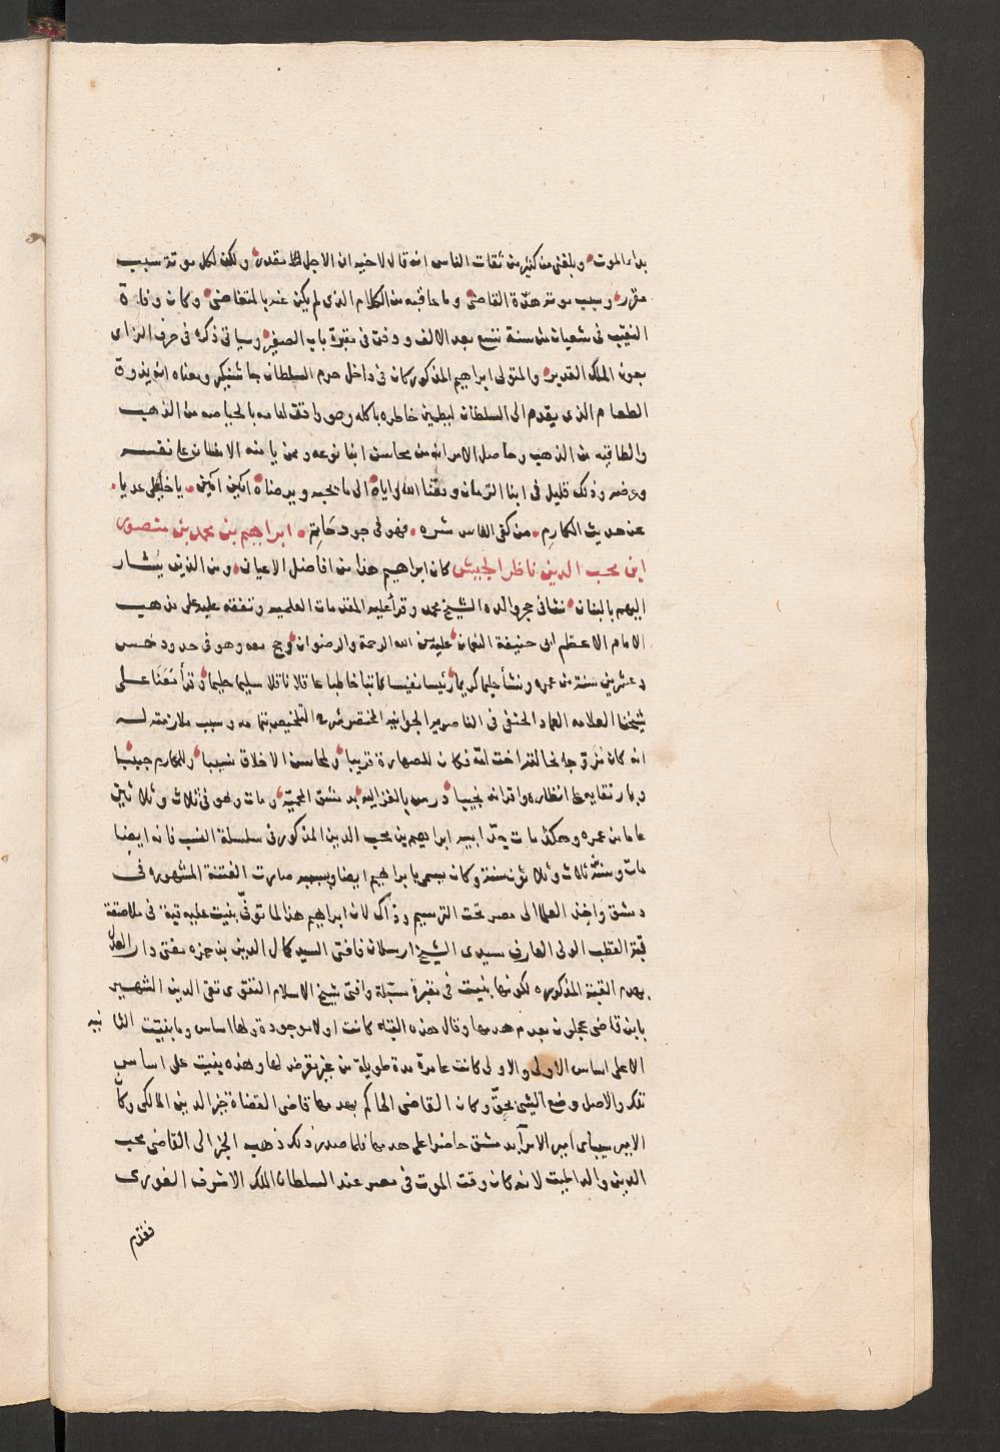 بداء الموت وبلغني من كثير من ثقات الناس انه قال لاخيه ان الاجل مقدر ولكن لكل موتة سبب
مقرر وسبب موته هذه القاضي وما عاقبه من الكلام الذي لم يكن عنه بالمتغاضي وكان وفاة
النقيب في شعبان من سنة تسع بعد الالف ودفن في مقبرة باب الصغير وسياتي ذكره في حرف الزاي
بعون الملك القدير والمتولي ابراهيم المذكور كان في داخل حرم السلطان جاشنيكر ومعناه انه يذوق
الطعام الذي يقدم الى السلطان ليطمئن خاطره باكله وهو واقف لمامه بالحياصه من الذهب
والطاقيه من الذهب وحاصل الامر انه من محاسن ابنا نوعه وممن يامنه الانسان على نفسه
وعرضه وذلك قليل في ابنا الزمان وفقنا الله واياه الى ما يحبه ويرضاه امين امين يا خليلي عديا
عن حديث المكارم من كفى الناس شره فهو في جود حاتم ابراهيم بن محمد بن منصور
ابن محب الدين ناظر الجيش كان ابراهيم هذا من افاضل الاعيان ومن الذين يشار
اليهم بالبنان نشا في حجر والده الشيخ محمد وقرأ عليه المقدمات العلميه وتفقه عليه على مذهب
الامام الاعظم ابي حنيفة النعمان عليه من الله الرحمة والرضوان وحج معه وهو في حدود خمس
وعشرين سنة من عمره ونشأ حليما كريما رئيسا نفيسا كاتبا خاطبا عاقلا ناقلا سليما حليما وقرأ معنا على
شيخنا العلامه العماد الحنفي في الناصريه الجوانيه المختصر شرح التلخيص بتمامه وسبب ملازمته له
انه كان متزوجا بخالته اخت امه فكان للصهارة قريبا ولمحاسن الاخلاق نسيبا وللمكارم حبيبا
وبارتقايه على انظاره واقرانه نجيبا درس بالغزاليه بدمشق المحميه ومات وهو في ثلاث وثلاثين
عاما من عمره وهكذا مات جد ابيه ابراهيم بن محب الدين المذكور في سلسلة النسب فانه ايضا
مات وسنه ثلاث وثلاثون سنة وكان يسمى بابراهيم ايضا وبسببه صارت الفتنة المشهوره في
دمشق واخذ العلما الى مصر تحت الترسيم وذاك لان ابراهيم هذا لما توفي بنيت عليه قبة في ملاصقة
قبة القطب الولي العارف سيدي الشيخ ارسلان فافتى السيد كمال الدين بن حمزه مفتي دار العدل
بهدم القبة المذكوره لكونها بنيت في مقبرة مسبلة وافتى شيخ الاسلام التقوى تقي الدين الشهير
بابن قاضي عجلون بعدم هدمها وقال هذه القبه كانت اولا موجودة ولها اساس وما بنيت الثانيه
الا على اساس الاولى والاولى كانت عامرة مدة طويلة من غير تعرض لها وهذه بنيت على اساس
تلك والاصل وضع الشي بحق وكان القاضي الحاكم بعدمها قاضي القضاة خير الدين المالكي وكان
الامير سيباي امير الامرآ بدمشق حاضرا على هدمها فلما صدر ذلك ذهب الخبر الى القاضي محب
الدين والد الميت لانه كان وقت الموت في مصر عند السلطان الملك الاشرف الغوري
فقدم